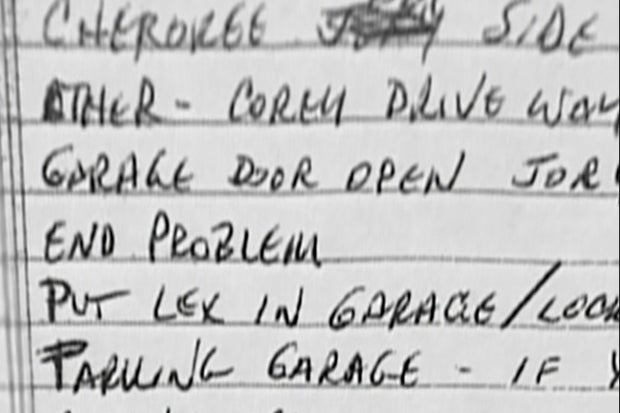 CHEROKEE SIDE
OTHER - COREY DRIVE WAY
GARAGE DOOR OPEN JOR
END PROBLEM
PUT LEX IN GARAGE/LOOK
PARKING GARAGE - IF